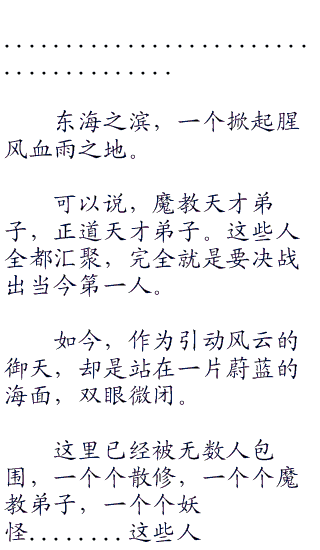 .........................
..............
东海之滨，一个掀起腥
风血雨之地。
可以说，魔教天才弟
子，正道天才弟子。这些人
全都汇聚，完全就是要决战
出当今第一人。
如今，作为引动风云的
御天，却是站在一片蔚蓝的
海面，双眼微闭。
这里已经被无数人包
围，一个个散修，一个个魔
教弟子，一个个妖
怪........这些人